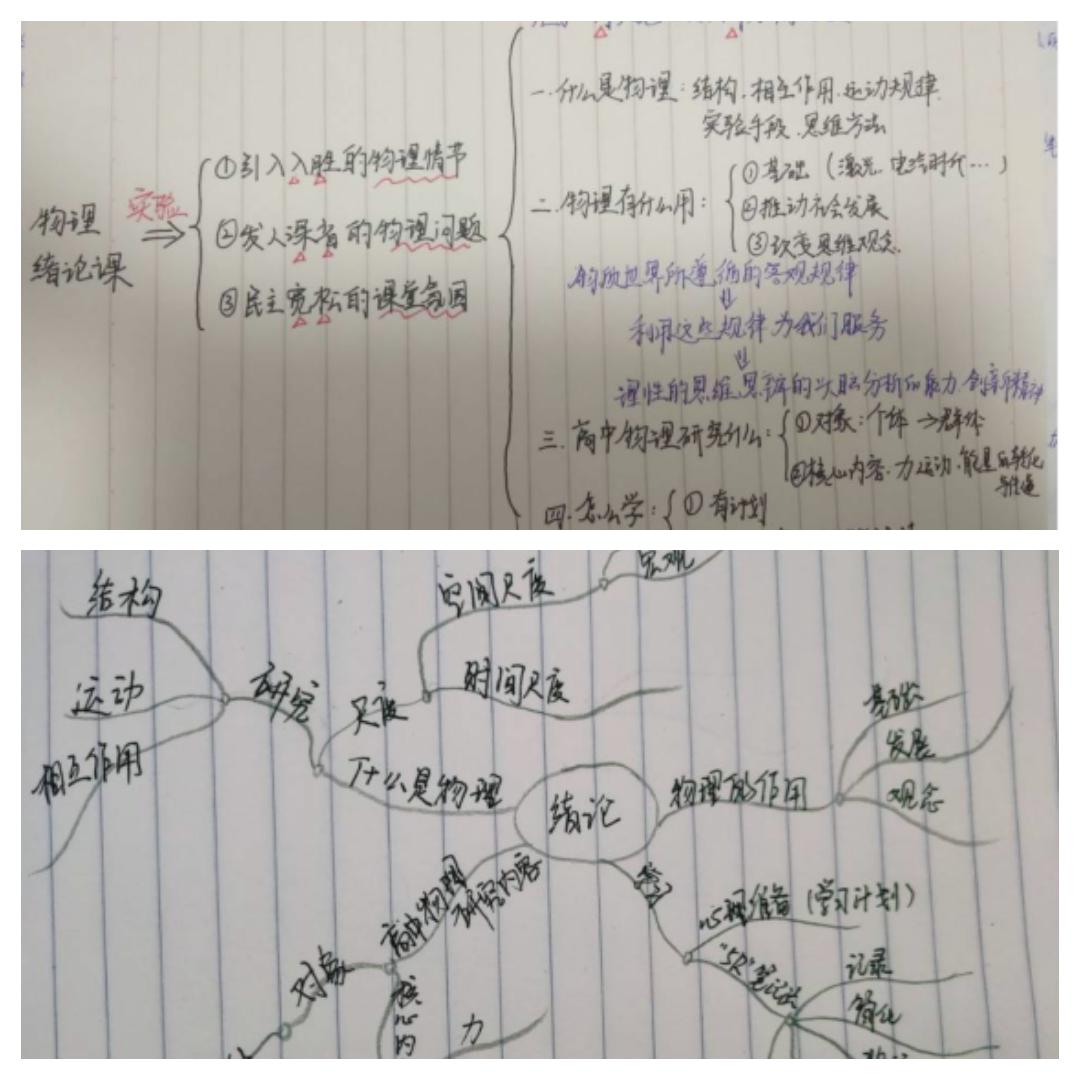 一.什么是物理：结构.相互作用.运动规律.
实验手段.思维方法
物理
绪论课
实验
①引入入胜的物理情节
②发人深省的物理问题
③民主宽松的课堂氛围
二.物理有什么用：
①基础（激光.电法时代…）
②推动社会发展
③改变思维观念.
物质世界所遵循的客观规律
利用这些规律为我们服务
理性的思维.思辨的头脑分析的能力.创新精神
三.高中物理研究什么：
①对象：个体→群体
②核心内容.力.运动.能量的转化
四.怎么学：
①有计划
结构
运动
相互作用
研究
尺度
空间尺度
宏观
时间尺度
什么是物理
绪论
物理的作用
基础
发展
观念
高中物理
研究内容
对象
核心的
力
心理准备（学习计划）
"5R"笔记法
记录
简化